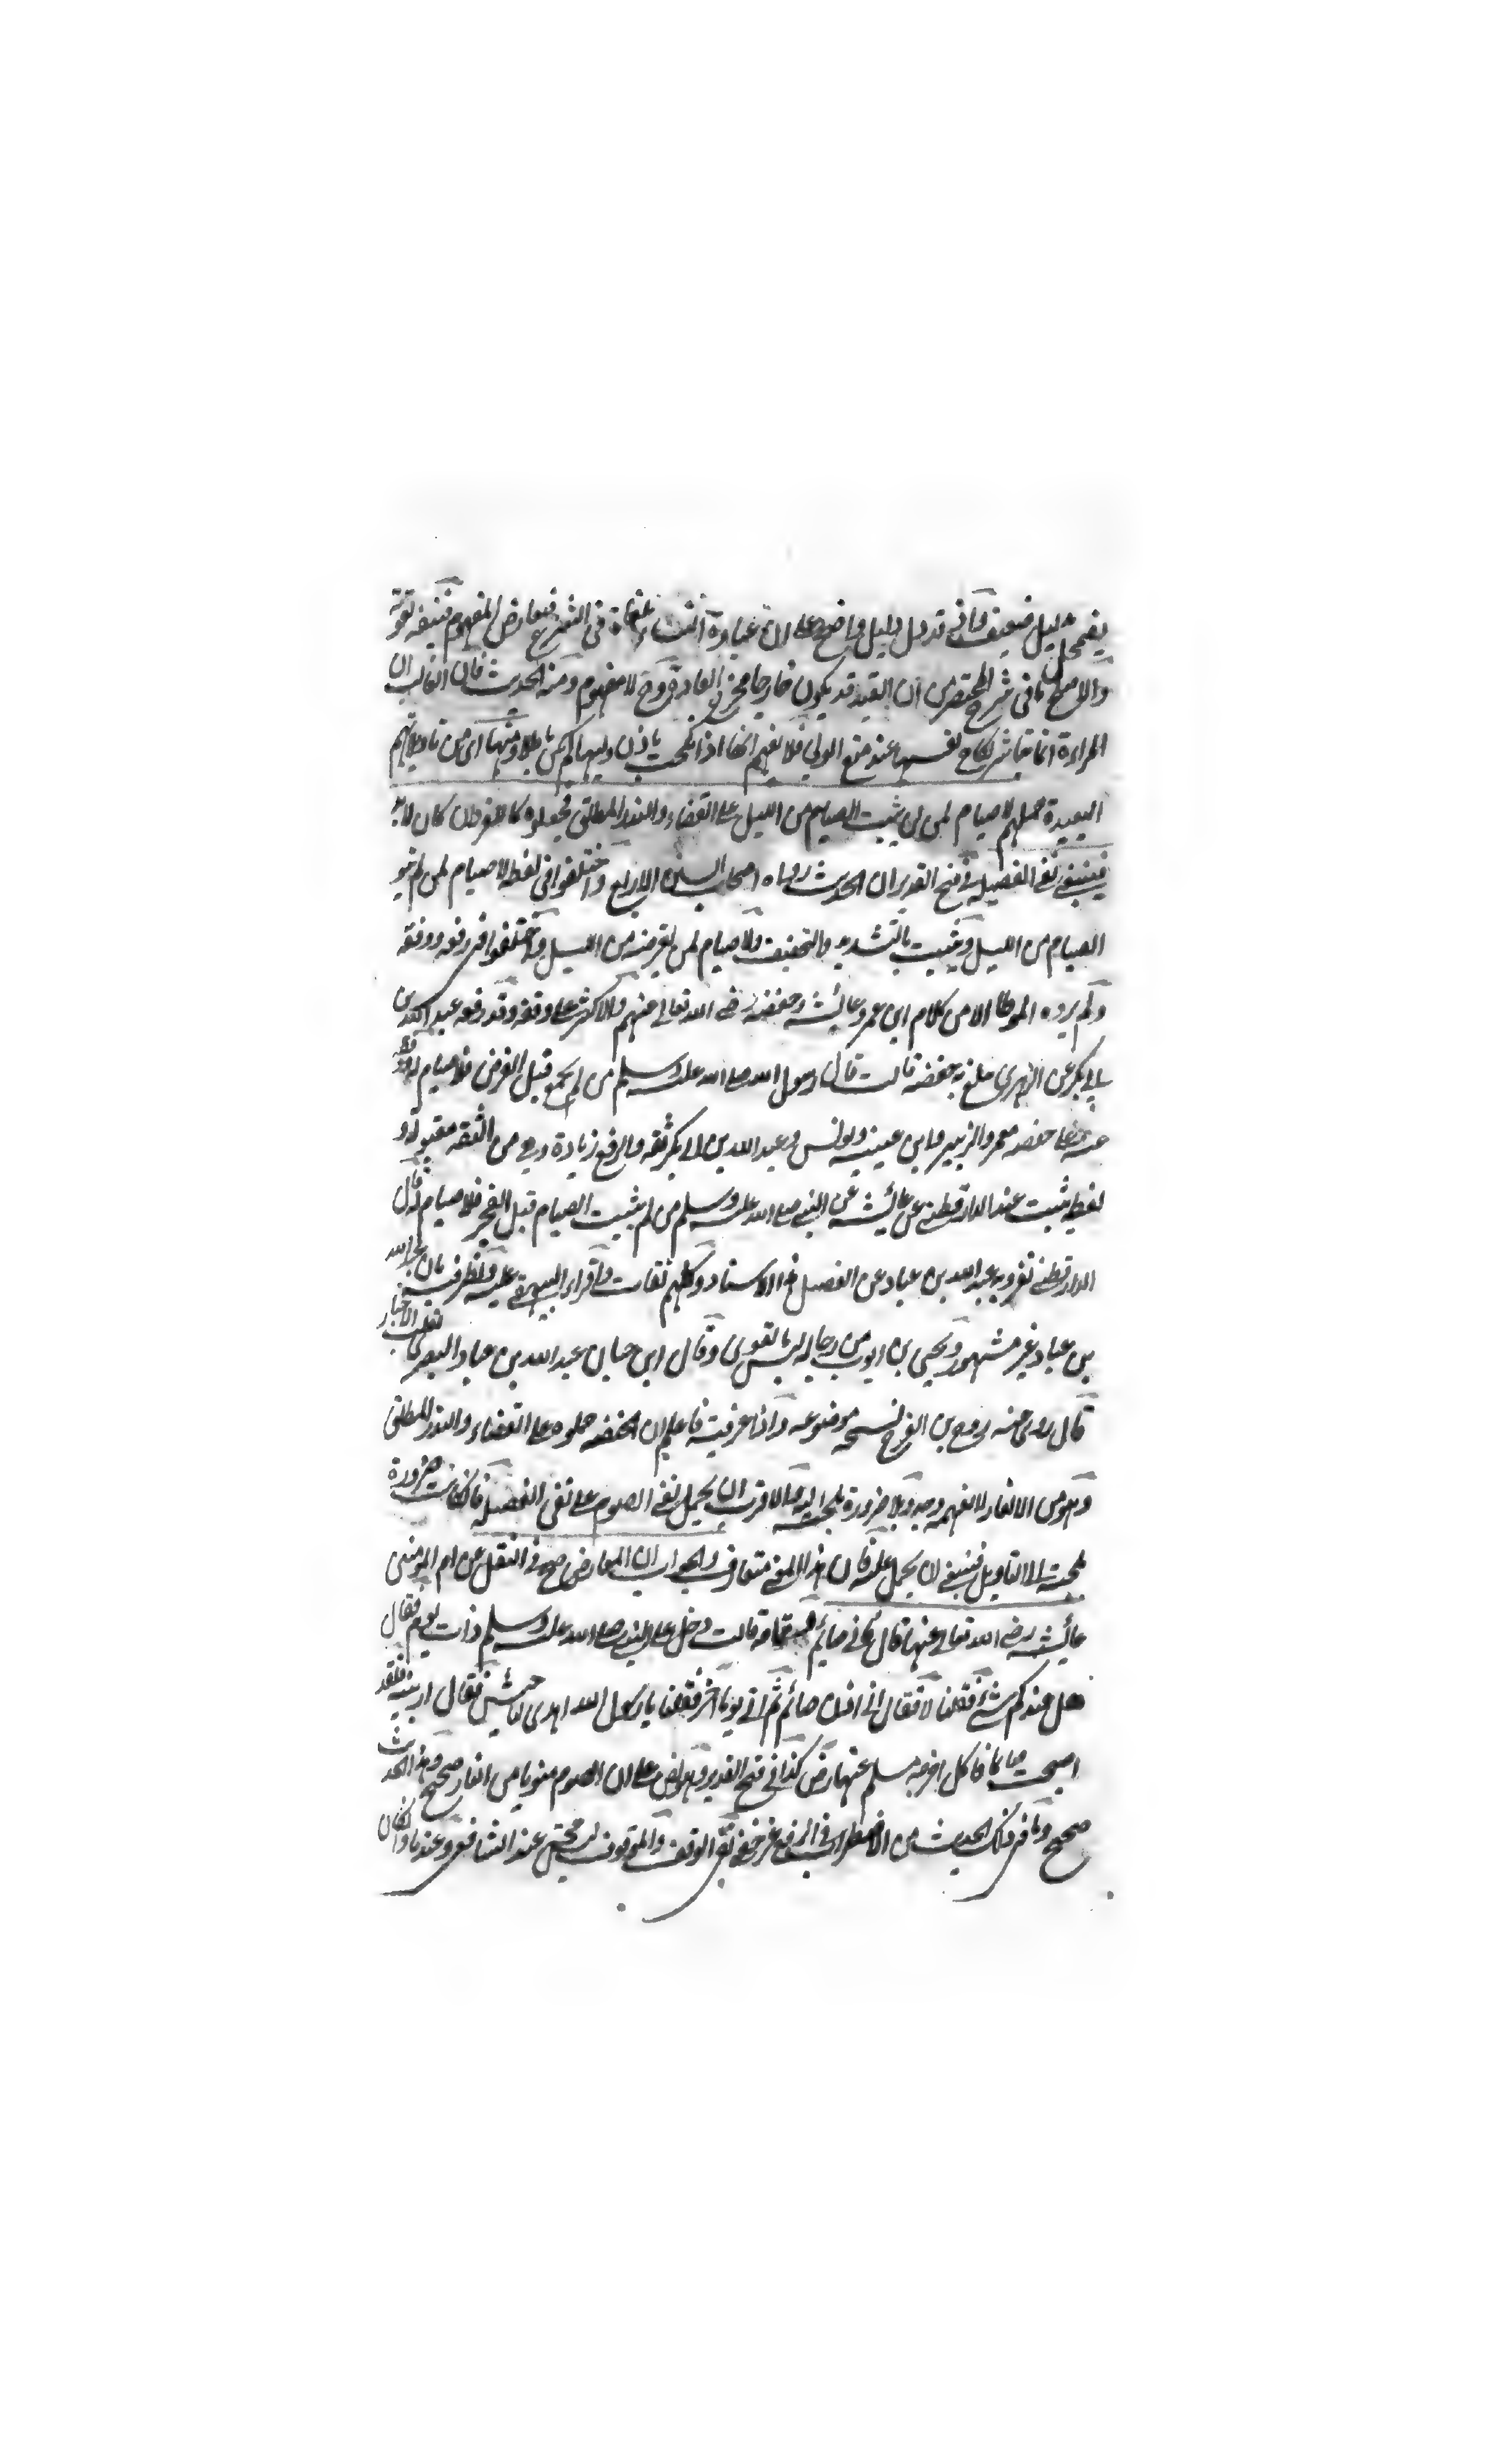 يضمحل بدليل ضعيف واني قد دل دليل واضح على ان عبارة النساء ملغاة في الشرع فيعارض المفهوم فينفيه لقوته
والاصح ما في شرح المختصر من ان القيد قد يكون خارجا مخرج العادة وح لا مفهوم ومنه الحديث فان الغالب ان
المراءة انما تباشر نكاح نفسها عند منع الولي فلا يفهم انها اذا نكحت باذن وليها لم يكن باطلا ومنها اي من تاويلاتهم
البعيدة حملهم لا صيام لمن لم يبيت الصيام من الليل على القضاء والنذر المطلق فجعلوه كاللغز فان كان لا بد
فينبغي نفي الفضيلة في فتح القدير ان الحديث رواه اصحاب السنن الاربع واختلفوا في لفظه لا صيام لمن لم ينو
الصيام من الليل ويبيت بالتشديد والتخفيف ولا صيام لمن لم يفرضه من الليل واختلفوا في رفعه ووقفه
ولم يروه الموطا الا من كلام ابن عمر وعائشة وحفصة رضي الله تعالى عنهم والاكثر على وقفه وقد رفعه عبد الله بن
ابي بكر عن الزهري يبلغ به حفصة قالت قال رسول الله صلى الله عليه وسلم من لم يجمع قبل الفجر فلا صيام له ووقفه
عنه على حفصة معمر والزبير وابن عيينه ويونس وعبد الله بن ابي بكر ثقة والرفع زيادة وهي من الثقة مقبولة و
لفظ يبيت عند الدارقطني عن عائشة عن النبي صلى الله عليه وسلم من لم يبيت الصيام قبل الفجر فلا صيام له قال
الدارقطني تفرد به عبد الله بن عباد عن الفضل بهذا الاسناد وكلهم ثقات واقره البيهقي عليه ونظر فيه بان عبد الله
بن عباد غير مشهور ويحيى بن ايوب من رجاله ليس بالقوي وقال ابن حبان عبد الله بن عباد البصري يقلب الاخبار
قال روى عنه روح بن الفرج نسخة موضوعه واذا عرفت فاعلم ان الحنفية حملوه على القضاء والنذر المطلق
وهو من الالغاز لا يفهمه وجه وبلا ضرورة ملجئة اليه والاقرب ان يحمل نفي الصوم على نفي الفضيلة فان كانت ضرورة
ملجئة الى التاويل فينبغي ان يحمل عليه فان هذا المعنى متعارف والجواب ان المعارض صح في النقل عن ام المومنين
عائشة رضي الله تعالى عنها قال اني صائم قالت دخل علي النبي صلى الله عليه وسلم ذات يوم فقال
هل عندكم شيء فقلنا لا فقال اني اذن صائم ثم اتى يوما اخر فقلنا يا رسول الله اهدي لنا حيس فقال ارينيه فلقد
اصبحت صائما فاكل اخرجه مسلم عنها رض كذا في فتح القدير وهو نص على ان الصوم منويا من النهار صحيح وهذا الحديث
صحيح وما في ذلك الحديث من الاضطراب في الرفع غير خفي بقي الوقف والموقوف ليس بحجة عند الشافعي وعندنا وان كان